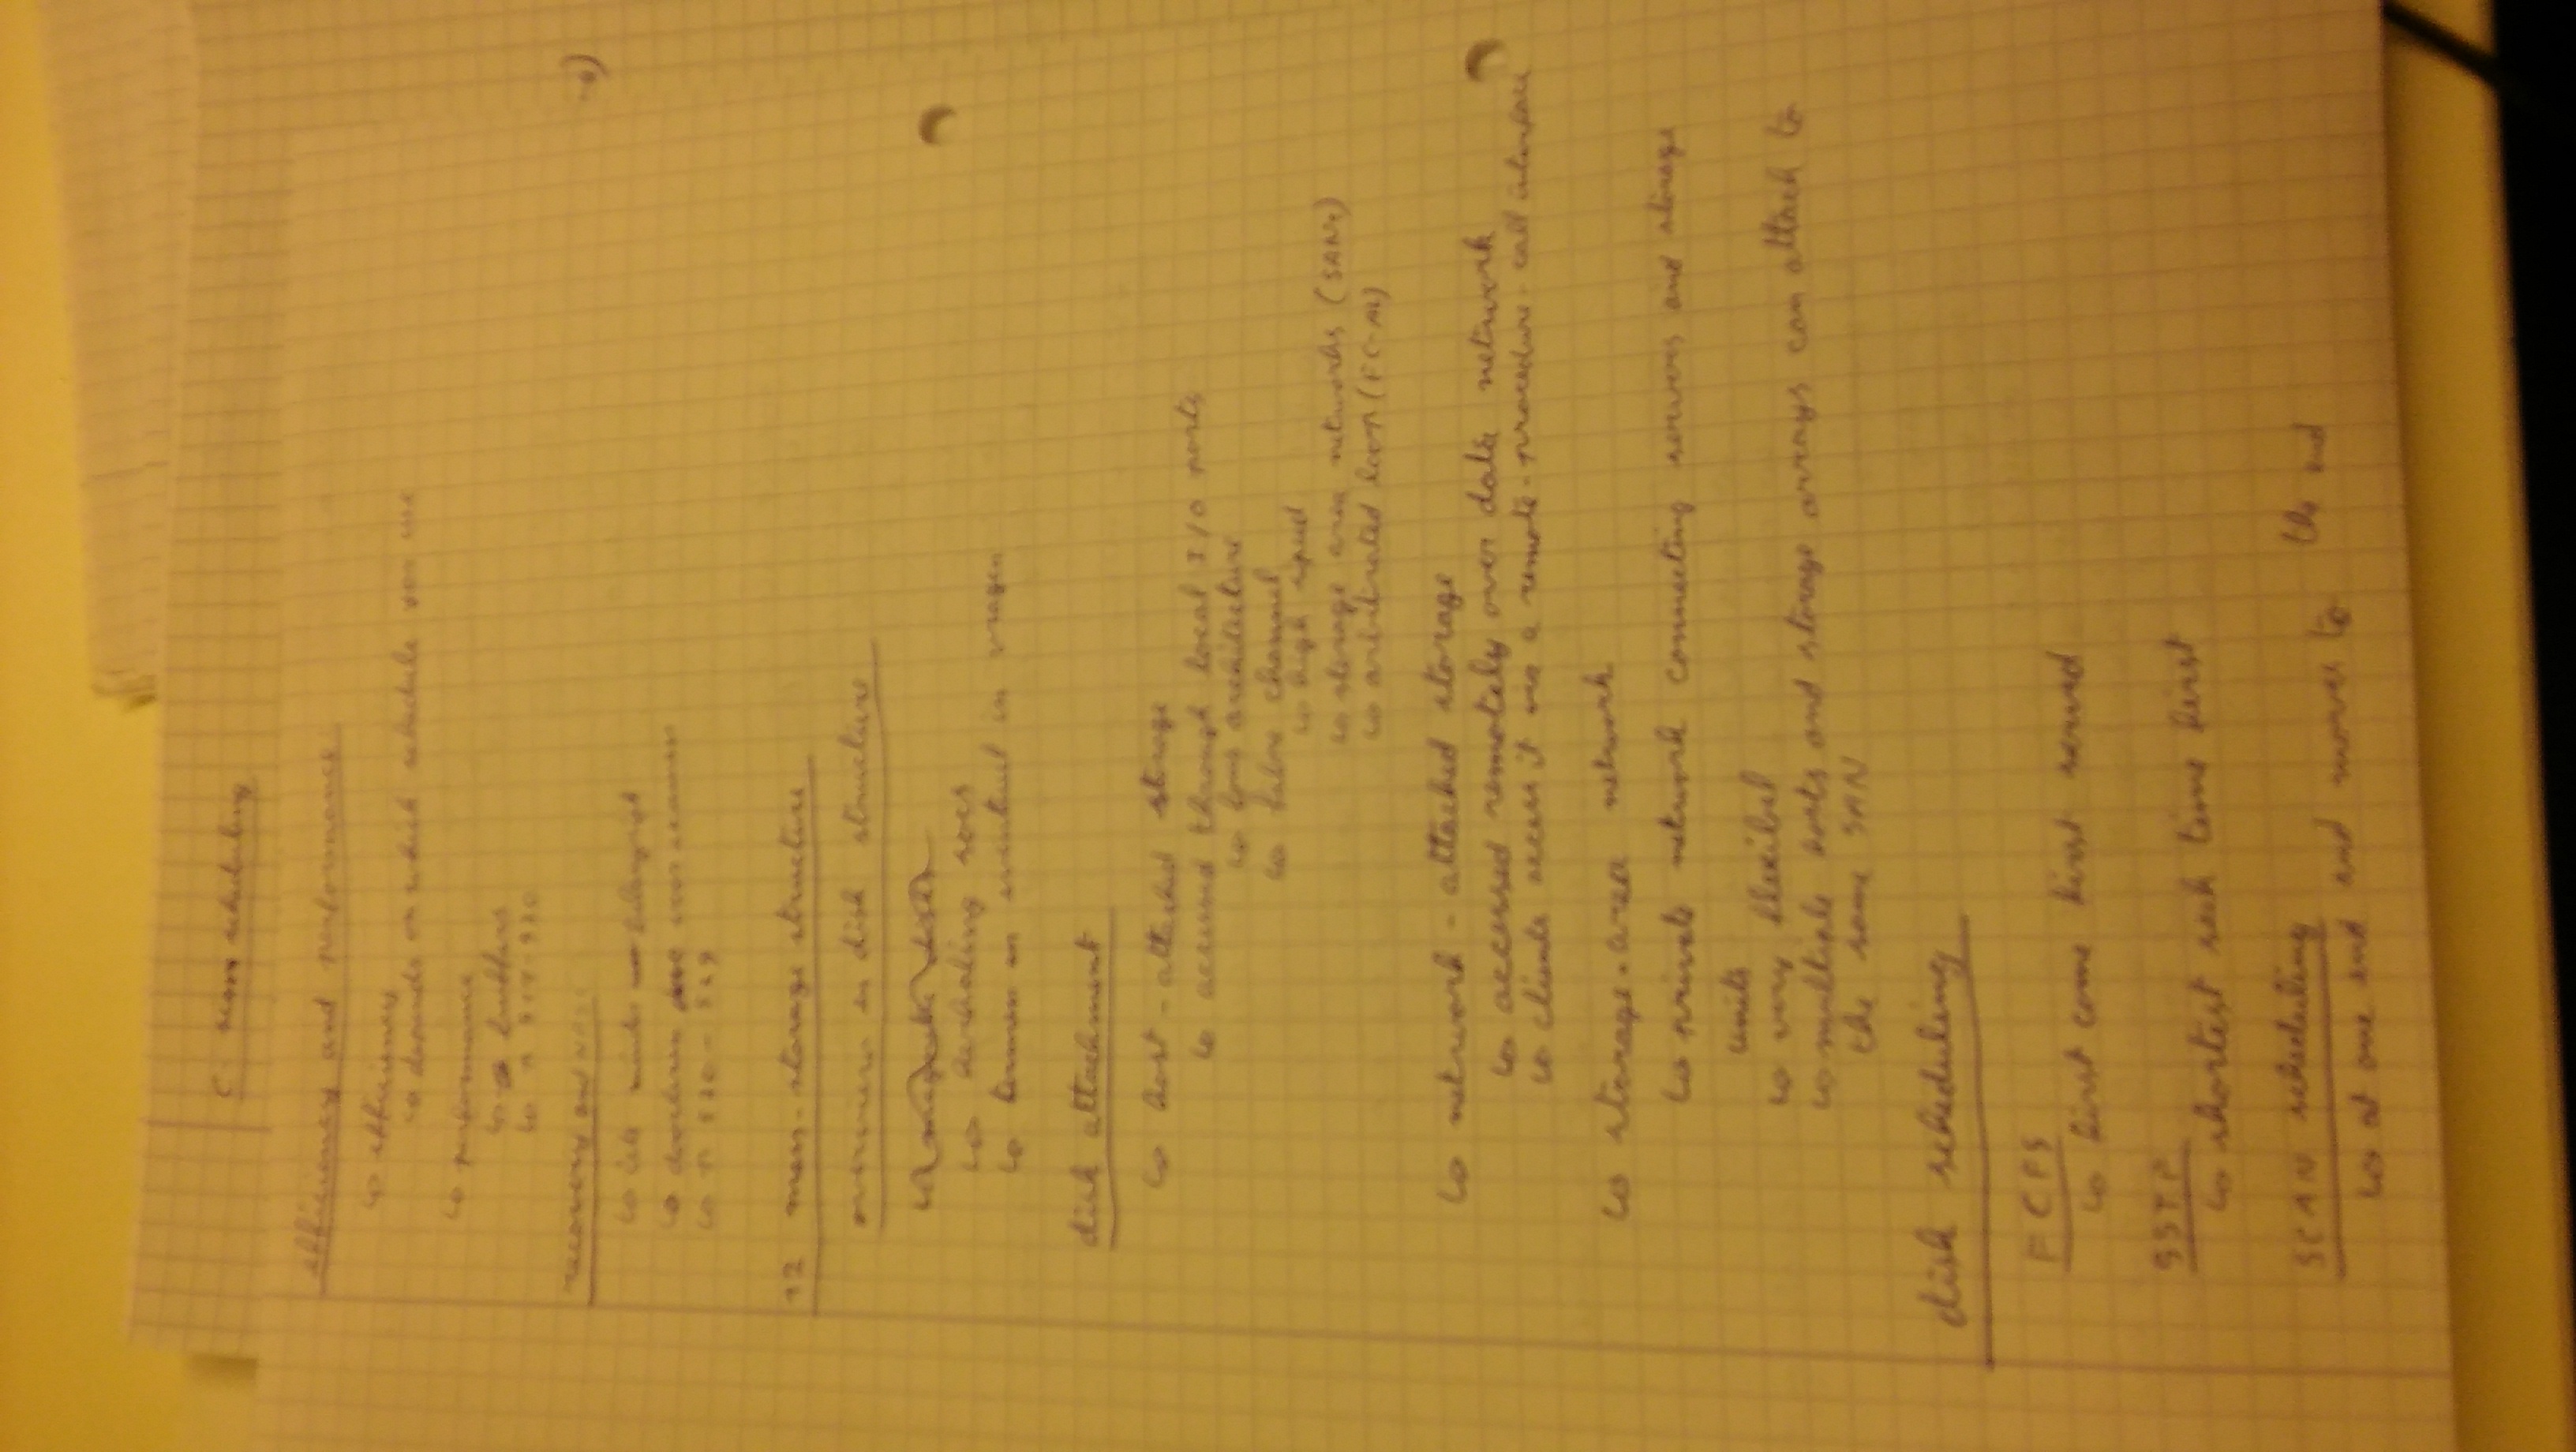 C- scan scheduling
efficiency and performance
↳ efficiency
↳ depends on which schedule you use
↳ performance
↳ buffers
↳
recovery and
↳ iets minder belangrijk
↳ doorlezen voor examen
↳ p 520 - 529
12 mass-storage structure
overview en disk structure
↳ magnetic disks
↳ herhaling socs
↳ termen en eventueel in vragen
disk attachment
↳ host - attached storage
↳ accessed through local I/O ports
↳ bus architecture
↳ fibre channel
↳ high speed
↳ storage area networks (SANs)
↳ arbitrated loop (FC-AL)
↳ network - attached storage
↳ accessed remotely over data network
↳ clients access it via a remote-procedure-call interface
↳ storage-area network
↳ private network connecting servers and storage
units
↳ very flexibel
↳ multiple hosts and storage arrays can attach to
the same SAN
disk scheduling
FCFS
↳ first come first served
SSTF
↳ shortest seek time first
SCAN scheduling
↳ at one end and moves to the end